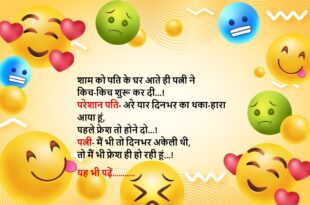 शाम को पति के घर आते ही पत्नी ने
किच-किच शुरू कर दी...!
परेशान पति- अरे यार दिनभर का थका-हारा
आया हूं,
पहले फ्रेश तो होने दो...!
पत्नी- मैं भी तो दिनभर अकेली थी,
तो मैं भी फ्रेश ही हो रही हूं...!
यह भी पढ़ें...........